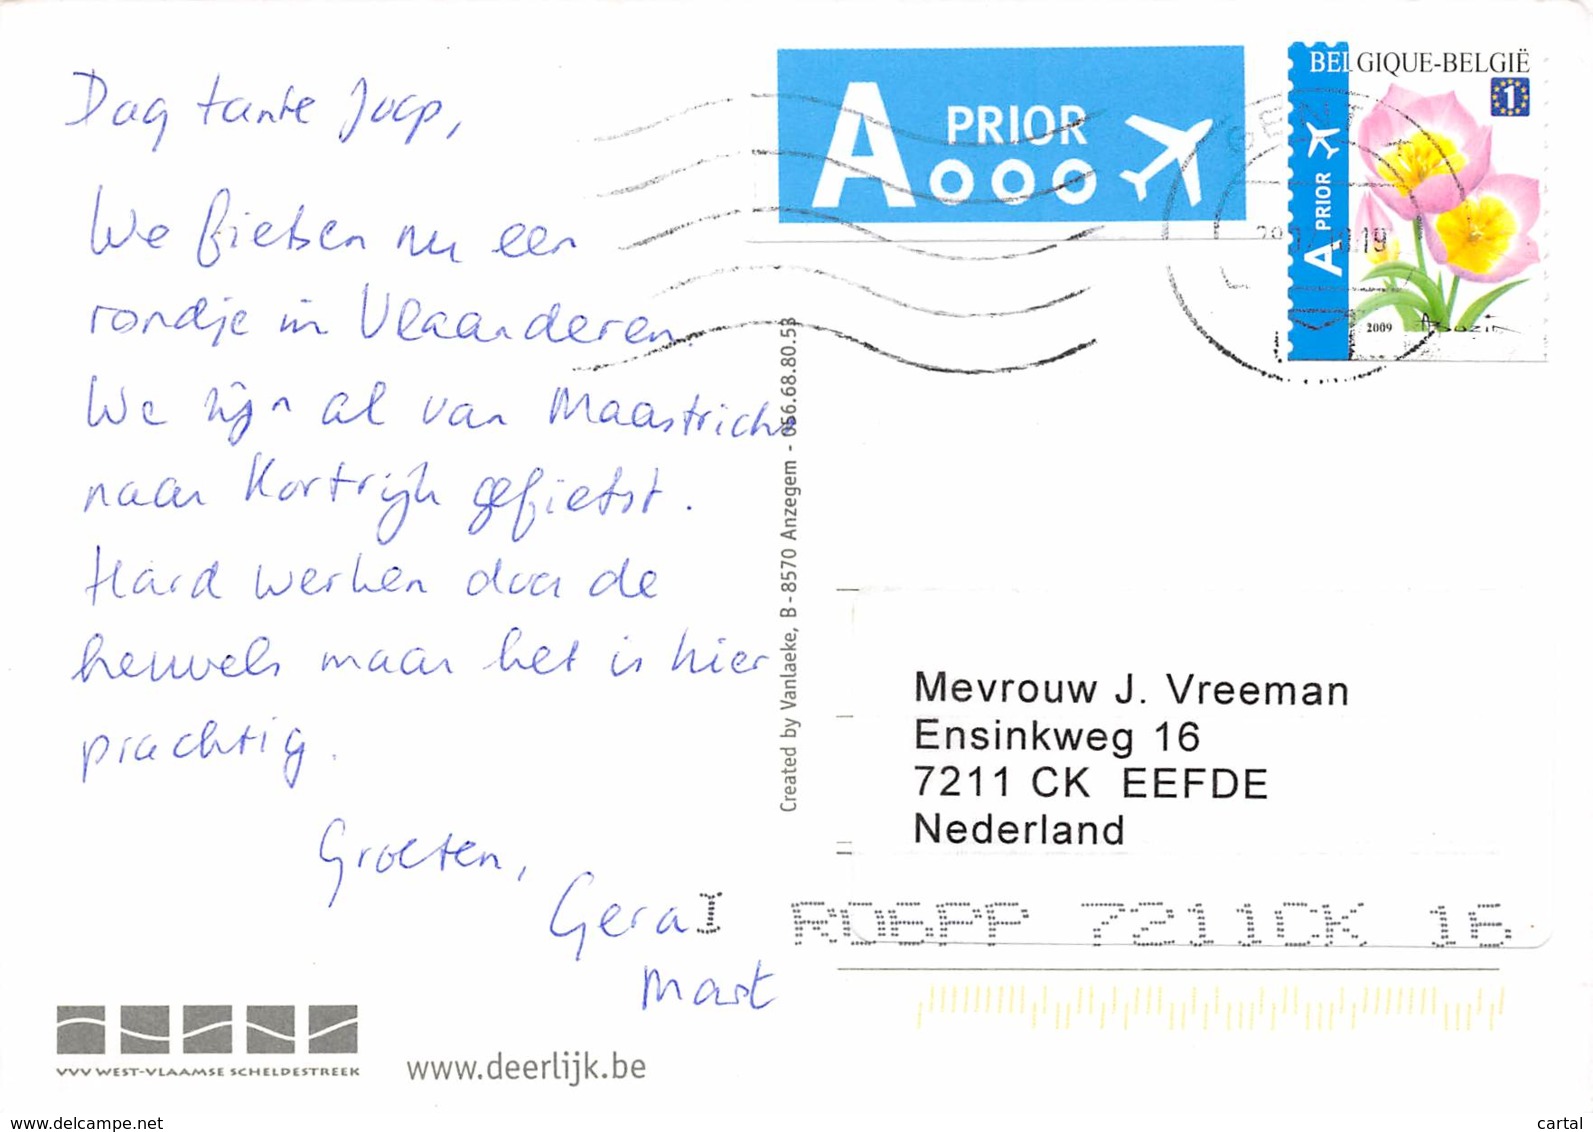 Dag tante Joop,
We fietsen nu een
rondje in Vlaanderen.
We zijn al van Maastricht
naar Kortrijk gefietst.
Hard werken door de
heuvels maar het is hier
prachtig.
Groeten,
Gera
Mart
VVV WEST-VLAAMSE SCHELDESTREEK
www.deerlijk.be
Created by Vanlaeke, B-8570 Anzegem - 056.68.80.53
A PRIOR
BELGIQUE-BELGIË
1
A PRIOR
2009
GENT
Mevrouw J. Vreeman
Ensinkweg 16
7211 CK EEFDE
Nederland
7211CK 16
www.delcampe.net
cartal